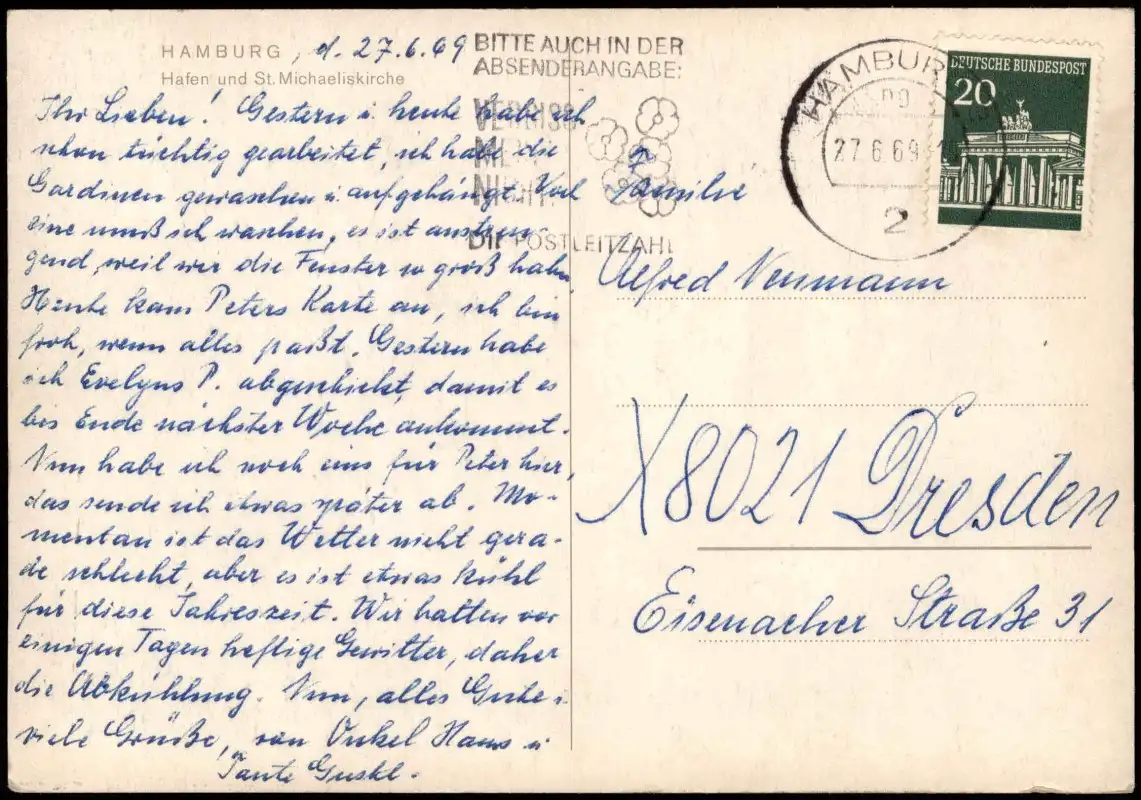 HAMBURG, d. 27.6.69
Hafen und St. Michaeliskirche
Ihr Lieben! Gestern u. heute habe ich
schon tüchtig gearbeitet, ich habe die
Gardinen gewaschen u. aufgehängt. Noch
eine muß ich waschen, es ist anstren-
gend, weil wir die Fenster so groß haben.
Heute kam Peters Karte an, ich bin
froh, wenn alles paßt. Gestern habe
ich Evelyns P. abgeschickt, damit es
bis Ende nächster Woche ankommt.
Nun habe ich noch eins für Peter hier,
das sende ich etwas später ab. Mo-
mentan ist das Wetter nicht gera-
de schlecht, aber es ist etwas kühl
für diese Jahreszeit. Wir hatten vor
einigen Tagen heftige Gewitter, daher
die Abkühlung. Nun, alles Gute u.
viele Grüße, von Onkel Hans u.
Tante
BITTE AUCH IN DER
ABSENDERANGABE:
VERGISS
MEIN
NICHT
DIE POSTLEITZAHL
HAMBURG
27.6.69
2
DEUTSCHE BUNDESPOST
20
Familie
Alfred Neumann
X8021 Dresden
Eisenacher Straße 31